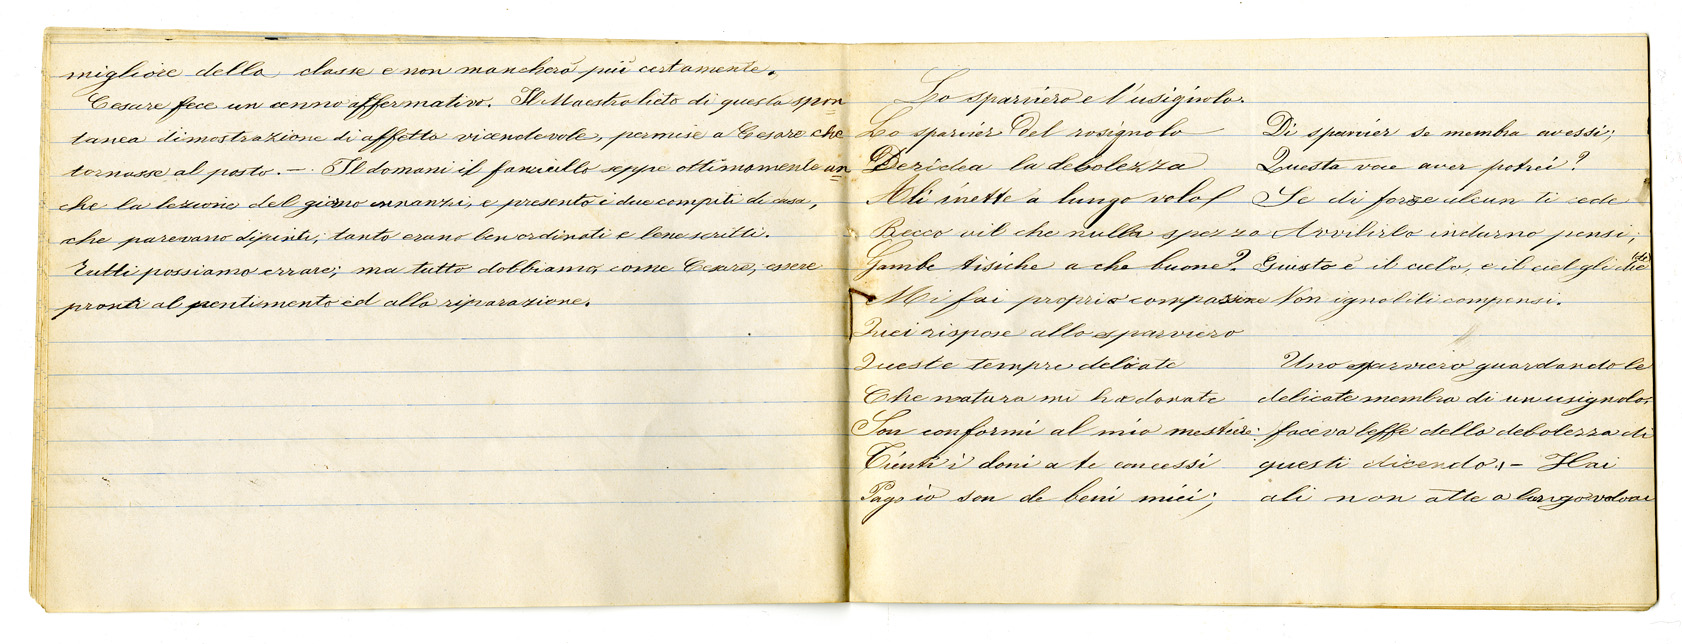 migliore della classe e non mancherà più certamente.
Cesare fece un cenno affermativo. Il Maestro lieto di questa spon
tanea dimostrazione di affetto vicendevole, permise a Cesare che
tornasse al posto. — Il domani il fanciullo seppe ottimamente an
che la lezione del giorno innanzi, e presentò i due compiti di casa,
che parevano dipinti; tanto erano ben ordinati e bene scritti.
Tutti possiamo errare; ma tutto dobbiamo, come Cesare, essere
pronti al pentimento ed alla riparazione.
Lo sparviero e l'usignolo.
Lo sparvier del rosignolo
Deridea la debolezza
Ali inette a lungo volo!
Becco vil che nulla spezza
Gambe tisiche a che buone?
Mi fai proprio compassione
Quei rispose allo sparviero
Queste tempre delicate
Che natura mi ha donate
Son conformi al mio mestiere:
Tienti i doni a te concessi
Pago io son de beni miei;
Di sparvier se membra avessi;
Questa voce aver potrei?
Se di forze alcun ti cede
Avvilirlo indarno pensi;
Giusto è il cielo, e il ciel gli die(de)
Non ignobili compensi.
Uno sparviero guardando le
delicate membra di un usignolo,
faceva beffe della debolezza di
questi dicendo: — Hai
ali non atte a lungo volare